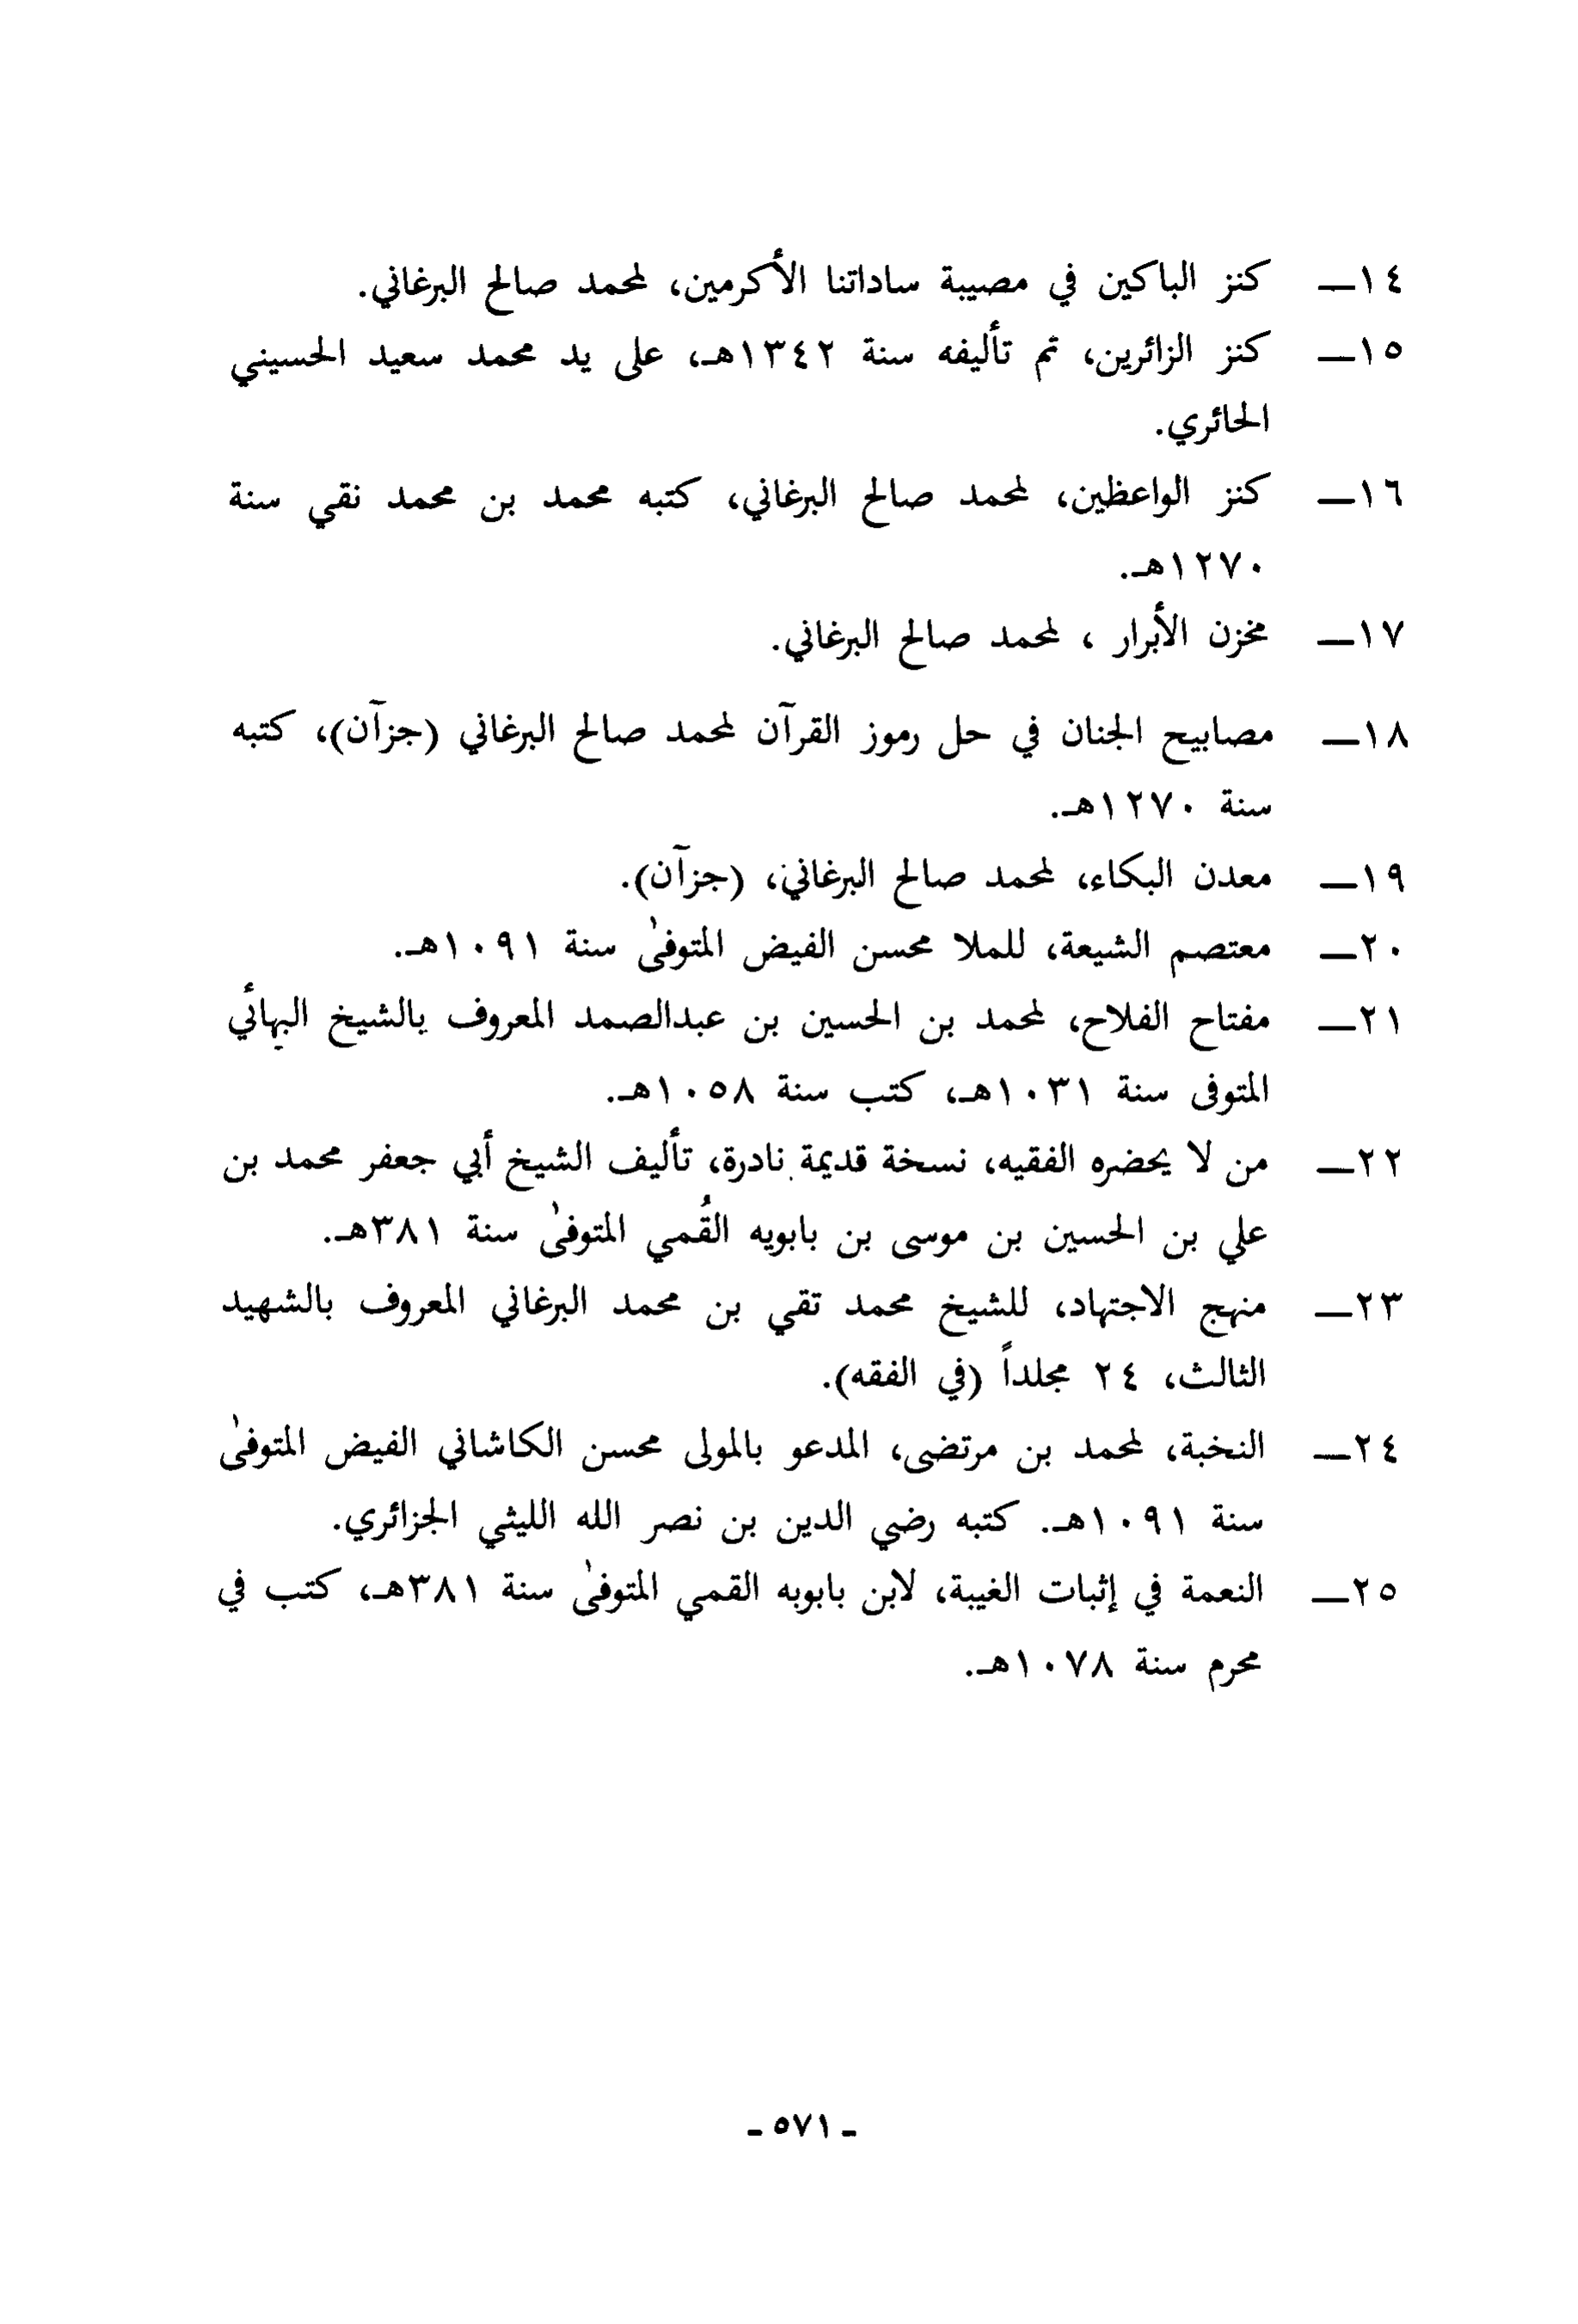 ١٤ــ كنز الباكين في مصيبة ساداتنا الأكرمين، لمحمد صالح البرغاني.
١٥ــ كنز الزائرين، تم تأليفه سنة ١٣٤٢هـ، على يد محمد سعيد الحسيني
الحائري.
١٦ــ كنز الواعظين، لمحمد صالح البرغاني، كتبه محمد بن محمد نقي سنة
١٢٧٠هـ.
١٧ــ مخزن الأبرار ، لمحمد صالح البرغاني.
١٨ــ مصابيح الجنان في حل رموز القرآن لمحمد صالح البرغاني (جزآن)، كتبه
سنة ١٢٧٠هـ.
١٩ــ معدن البكاء، لمحمد صالح البرغاني، (جزآن).
٢٠ــ معتصم الشيعة، للملا محسن الفيض المتوفىٰ سنة ١٠٩١هـ.
٢١ــ مفتاح الفلاح، لمحمد بن الحسين بن عبدالصمد المعروف بالشيخ البهائي
المتوفى سنة ١٠٣١هـ، كتب سنة ١٠٥٨هـ.
٢٢ــ من لا يحضره الفقيه، نسخة قديمة نادرة، تأليف الشيخ أبي جعفر محمد بن
علي بن الحسين بن موسى بن بابويه القُمي المتوفىٰ سنة ٣٨١هـ.
٢٣ــ منهج الاجتهاد، للشيخ محمد تقي بن محمد البرغاني المعروف بالشهيد
الثالث، ٢٤ مجلداً (في الفقه).
٢٤ــ النخبة، لمحمد بن مرتضى، المدعو بالمولى محسن الكاشاني الفيض المتوفىٰ
سنة ١٠٩١هـ. كتبه رضي الدين بن نصر الله الليثي الجزائري.
٢٥ــ النعمة في إثبات الغيبة، لابن بابوبه القمي المتوفىٰ سنة ٣٨١هـ، كتب في
محرم سنة ١٠٧٨هـ.
- ٥٧١ -